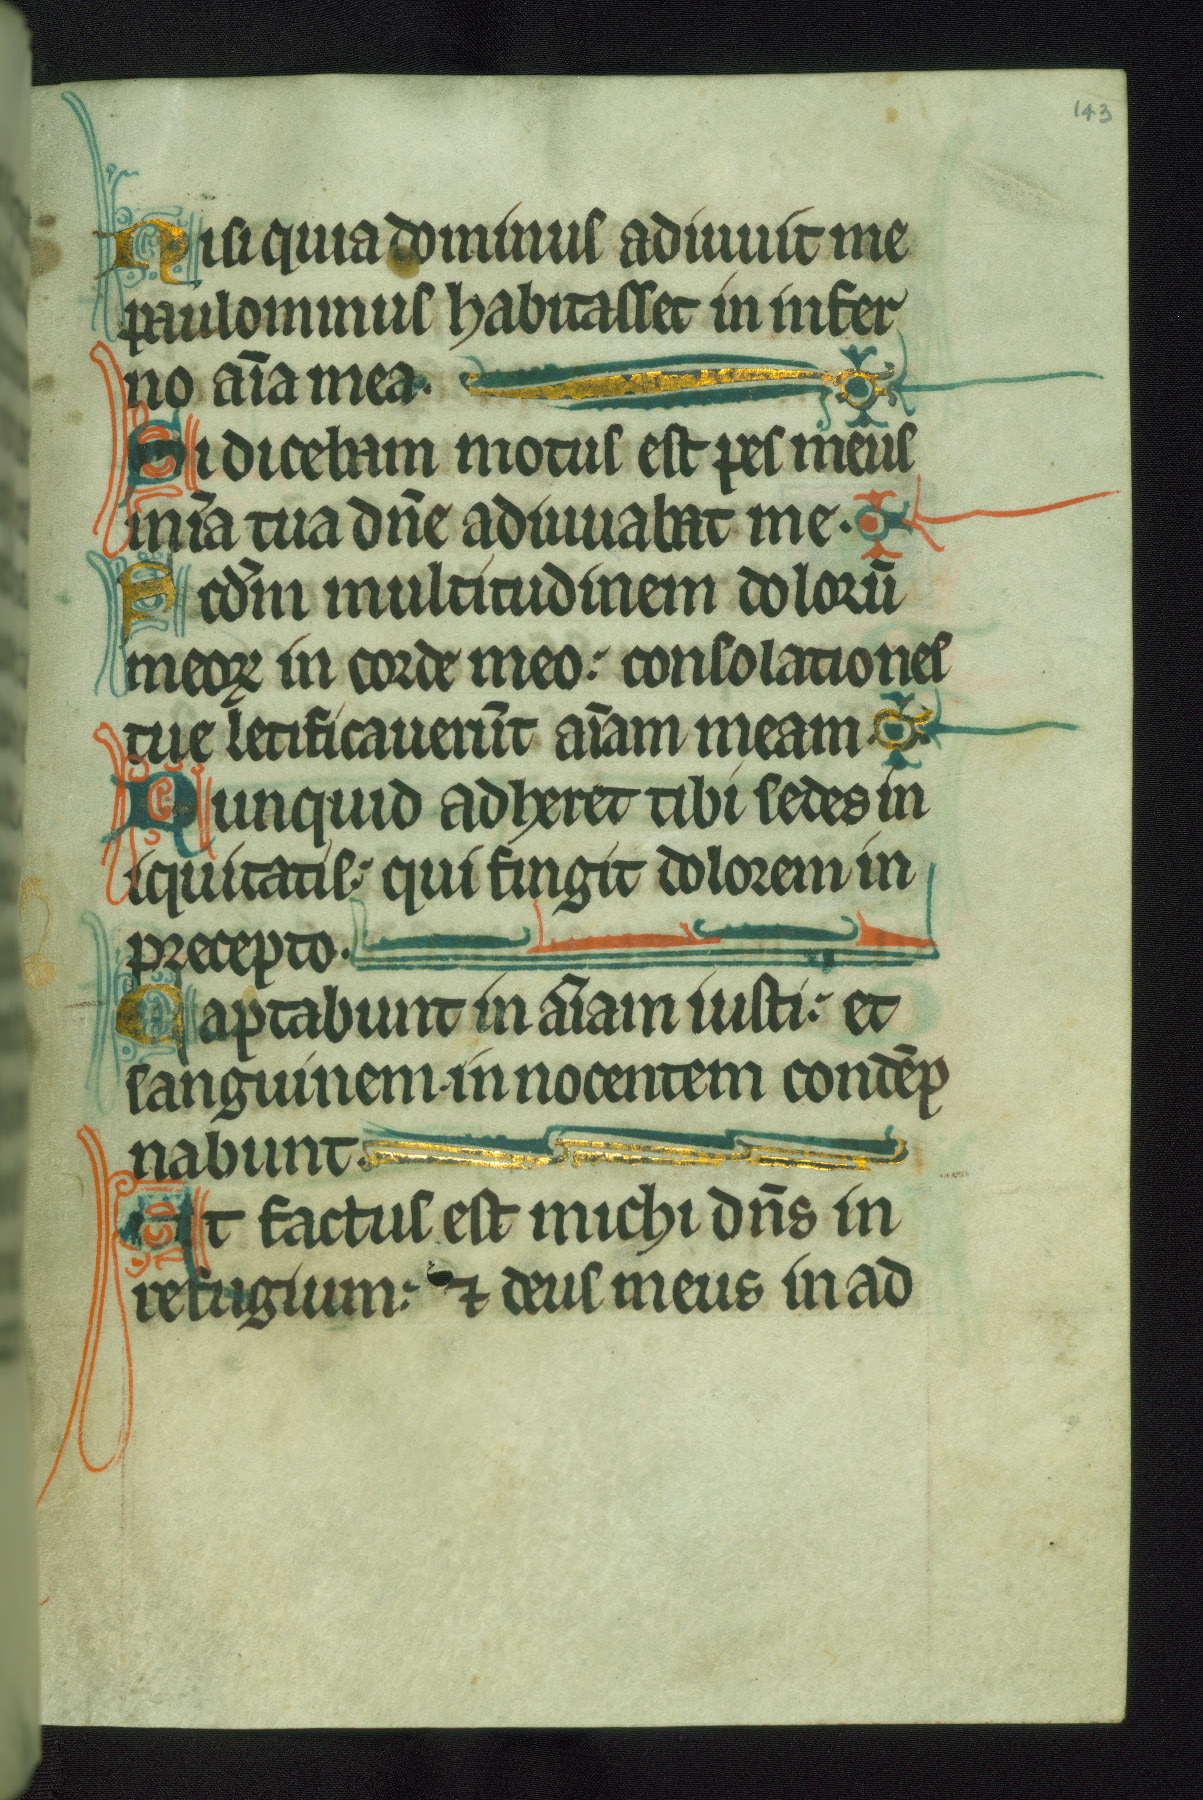 143
Nisi quia dominus adiuuit me
paulominus habitasset in infer
no aīa mea.
Si dicebam motus est pes meus
mīa tua dn̄e adiuuabat me.
Scd̄m multitudinem dolorū
meoꝝ in corde meo: consolationes
tue letificauerūt aīam meam.
Nunquid adheret tibi sedes in
iquitatis: qui fingit dolorem in
precepto.
Captabunt in aīam iusti: et
sanguinem innocentem condēp
nabunt.
Et factus est michi dn̄s in
refugium: ⁊ deus meus in ad